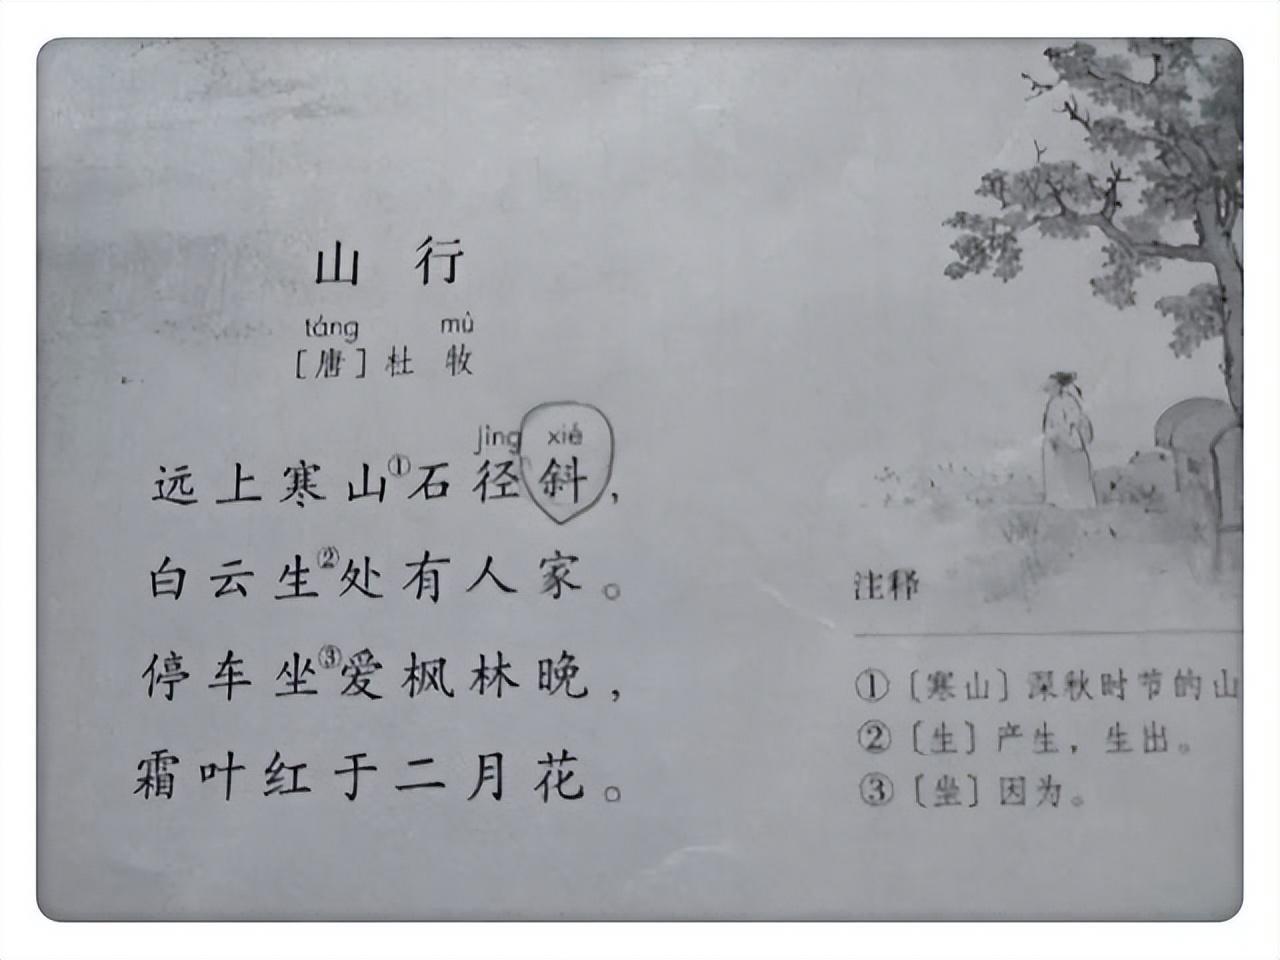 山行
táng mù
[唐]杜牧
jìng xié
远上寒山①石径斜，
白云生②处有人家。
停车坐③爱枫林晚，
霜叶红于二月花。
注释
①〔寒山〕深秋时节的山
②〔生〕产生，生出。
③〔坐〕因为。